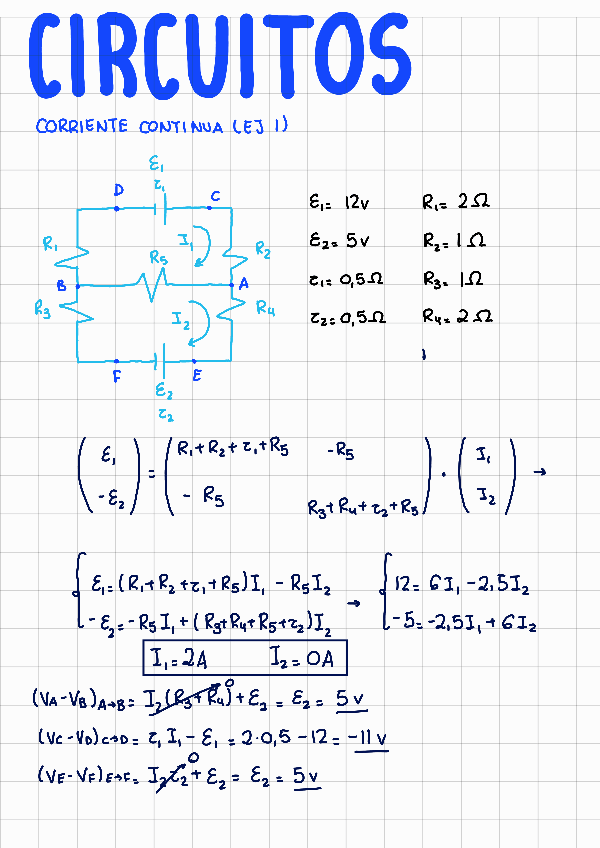 CIRCUITOS
CORRIENTE CONTINUA (EJ 1)
ε₁
τ₁
D C
R₁ I₁ R₂
R₅
B A
R₃ I₂ R₄
F E
ε₂
τ₂
ε₁= 12v R₁= 2Ω
ε₂= 5v R₂= 1Ω
τ₁= 0,5Ω R₃= 1Ω
τ₂= 0,5Ω R₄= 2Ω
(ε₁ -ε₂) = (R₁+R₂+τ₁+R₅ -R₅
-R₅ R₃+R₄+τ₂+R₅) · (I₁ I₂) →
{ε₁=(R₁+R₂+τ₁+R₅)I₁ - R₅I₂ → {12= 6I₁ -2,5I₂
-ε₂=-R₅I₁+(R₃+R₄+R₅+τ₂)I₂ -5=-2,5I₁+6I₂
I₁=2A I₂=0A
(VA-VB)A→B= I₂(R₃+R₄)⁰+ε₂= ε₂= 5v
(VC-VD)C→D= τ₁I₁-ε₁= 2·0,5-12= -11v
(VE-VF)E→F= I₂τ₂⁰+ε₂= ε₂= 5v